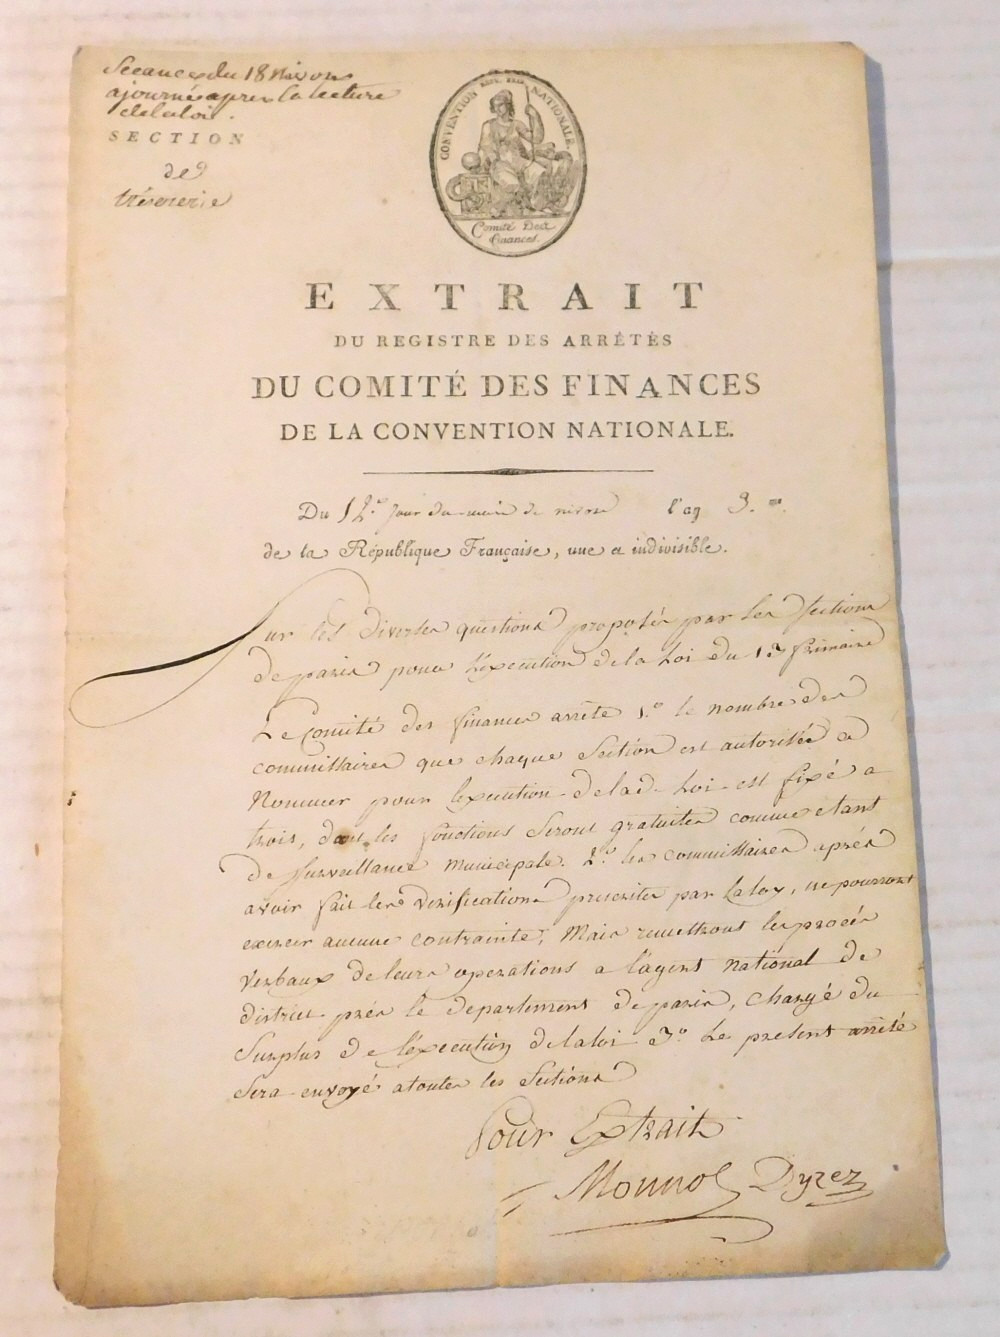 Seeance du 18 Nivose
ajournée apres la lecture
de la loi.
SECTION
de
trésorerie
CONVENTION NATIONALE.
Comité Des
finances.
EXTRAIT
DU REGISTRE DES ARRÊTÉS
DU COMITÉ DES FINANCES
DE LA CONVENTION NATIONALE.
Du 12.e jour du mois de nivose l'an 3.me
de la République Française, une et indivisible.
Sur les diverses questions proposées par les Sections
de paris pour l'execution de la Loi du 13 frimaire
Le Comité des finances arrête 1.o le nombre des
commissaires que chaque Section est autorisée a
Nommer pour l'execution de lad. Loi est fixé a
trois, dont les fonctions Seront gratuites comme etant
de Surveillance Municipale. 2.o les commissaires après
avoir fait les verifications prescrites par la loy, ne pourront
exercer aucune contrainte, Mais remettront les procès
verbaux de leurs operations a l'agent national de
district près le departement de paris, chargé du
Surplus de l'execution de la loi 3.o Le present arrêté
Sera envoyé a toutes les Sections
Pour Extrait
Monnot Dyzez